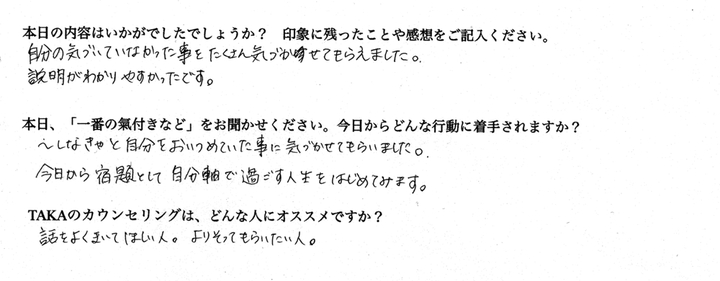 本日の内容はいかがでしたでしょうか？　印象に残ったことや感想をご記入ください。
自分の気づいていなかった事をたくさん気づか寄せてもらえました。
説明がわかりやすかったです。
本日、「一番の氣付きなど」をお聞かせください。今日からどんな行動に着手されますか？
～しなきゃと自分をおいつめていた事に気づかせてもらいました。
今日から宿題として自分軸で過ごす人生をはじめてみます。
TAKAのカウンセリングは、どんな人にオススメですか？
話をよくきいてほしい人。よりそってもらいたい人。